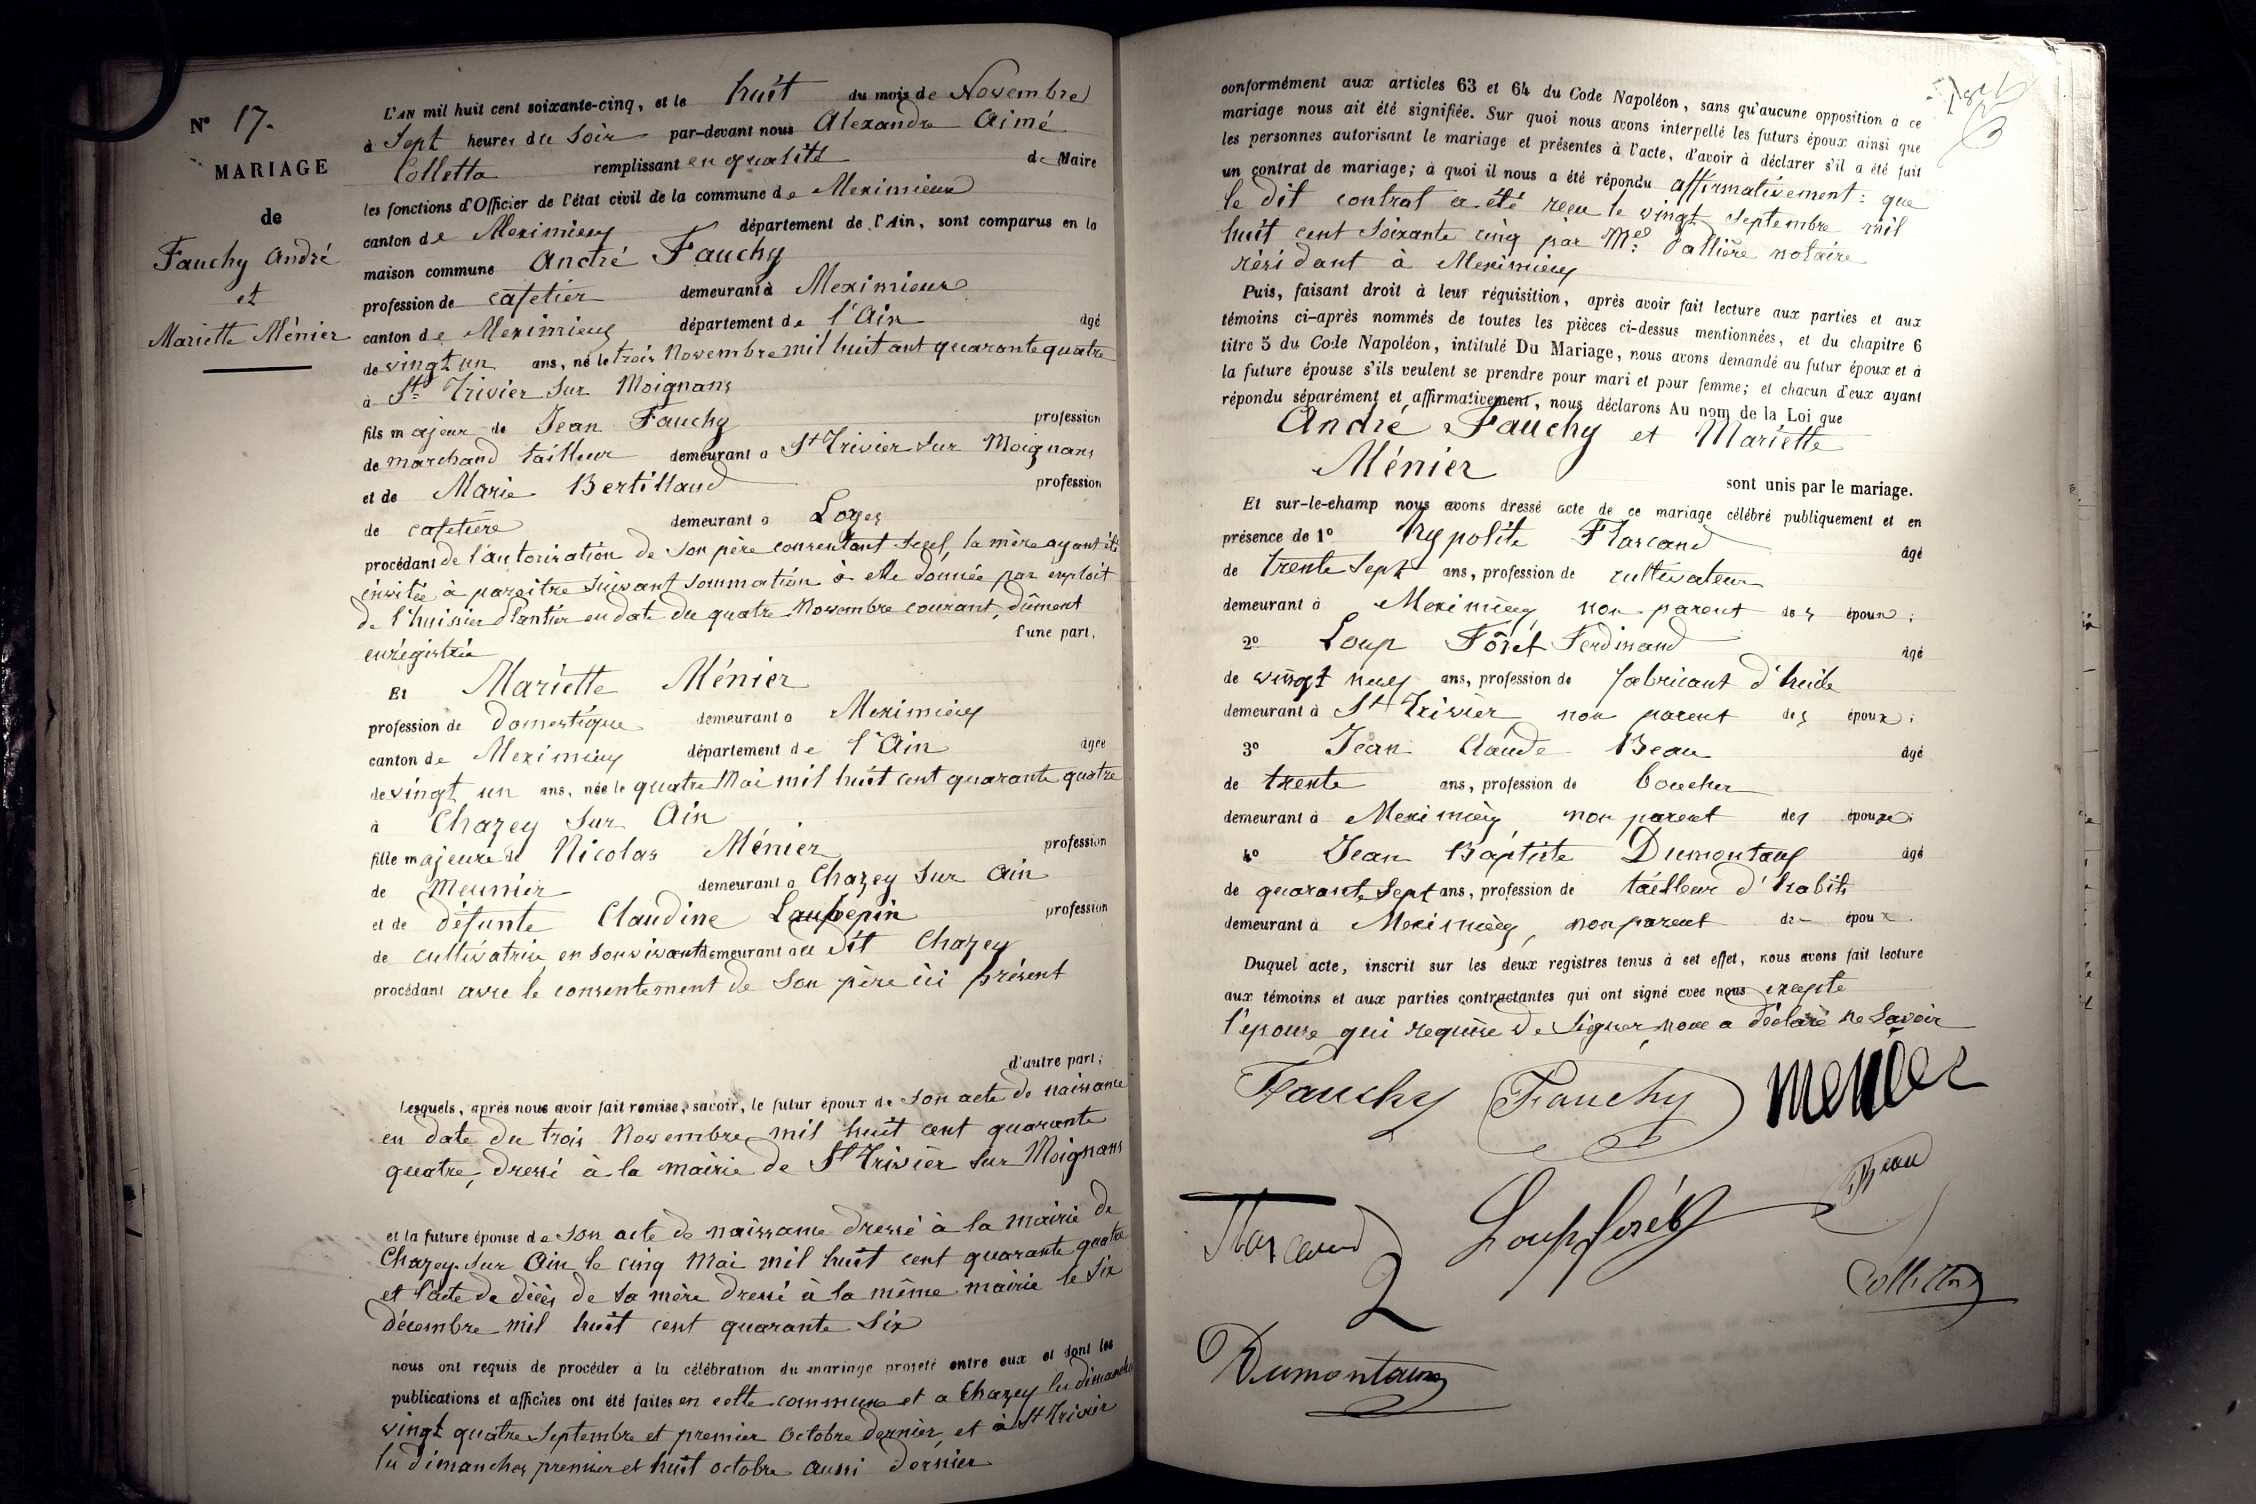 N° 17.
MARIAGE
de
Fauchy André
et
Mariette Ménier
L'AN mil huit cent soixante-cinq, et le huit du mois de Novembre
à Sept heures du Soir par-devant nous Alexandre Aimé
Colletta remplissant en qualité de Maire
les fonctions d'Officier de l'état civil de la commune de Meximieux
canton de Meximieux département de l'Ain, sont comparus en la
maison commune André Fauchy
profession de cafetier demeurant à Meximieux
canton de Meximieux département de l'Ain âgé
de vingt un ans, né le trois Novembre mil huit cent quarante quatre
à St Trivier sur Moignans
fils majeur de Jean Fauchy profession
de marchand tailleur demeurant à St Trivier sur Moignans
et de Marie Bertillaud profession
de cafetière demeurant à Loyes
procédant de l'autorisation de son père consentant seul, la mère ayant été
invitée à paroitre suivant sommation à elle donnée par exploit
de l'huissier Plantier en date du quatre Novembre courant, dûment
enrégistrée l'une part,
Et Mariette Ménier
profession de Domestique demeurant à Meximieux
canton de Meximieux département de l'Ain âgée
de vingt un ans, née le quatre Mai mil huit cent quarante quatre
à Chazey sur Ain
fille majeure de Nicolas Ménier profession
de Meunier demeurant à Chazey sur Ain
et de défunte Claudine Laubepin profession
de cultivatrice en son vivant demeurant au dit Chazey
procédant avec le consentement de son père ici présent
d'autre part;
Lesquels, après nous avoir fait remise, savoir, le futur époux de son acte de naissance
en date du trois Novembre mil huit cent quarante
quatre, dressé à la mairie de St Trivier sur Moignans
et la future épouse de son acte de naissance dressé à la mairie de
Chazey-sur Ain le cinq Mai mil huit cent quarante quatre
et l'acte de décès de sa mère dressé à la même mairie le six
décembre mil huit cent quarante six
nous ont requis de procéder à la célébration du mariage projeté entre eux et dont les
publications et affiches ont été faites en cette commune et à Chazey les dimanches
vingt quatre Septembre et premier Octobre dernier, et à St Trivier
les dimanches premier et huit octobre aussi dernier
conformément aux articles 63 et 64 du Code Napoléon, sans qu'aucune opposition à ce
mariage nous ait été signifiée. Sur quoi nous avons interpellé les futurs époux ainsi que
les personnes autorisant le mariage et présentes à l'acte, d'avoir à déclarer s'il a été fait
un contrat de mariage; à quoi il nous a été répondu affirmativement: que
le dit contrat a été reçu le vingt septembre mil
huit cent soixante cinq par Me Pallière notaire
résidant à Meximieux
Puis, faisant droit à leur réquisition, après avoir fait lecture aux parties et aux
témoins ci-après nommés de toutes les pièces ci-dessus mentionnées, et du chapitre 6
titre 5 du Code Napoléon, intitulé Du Mariage, nous avons demandé au futur époux et à
la future épouse s'ils veulent se prendre pour mari et pour femme; et chacun d'eux ayant
répondu séparément et affirmativement, nous déclarons Au nom de la Loi que
André Fauchy et Mariette
Ménier
sont unis par le mariage.
Et sur-le-champ nous avons dressé acte de ce mariage célébré publiquement et en
présence de 1° Hypolite Flarcand âgé
de trente sept ans, profession de cultivateur
demeurant à Meximieux, non parent des époux;
2° Loup Forét Ferdinand âgé
de vingt neuf ans, profession de fabricant d'huile
demeurant à St Trivier non parent des époux;
3° Jean Claude Beau âgé
de trente ans, profession de boucher
demeurant à Meximieux non parent des époux;
4° Jean Baptiste Dumontaux âgé
de quarante sept ans, profession de tailleur d'habits
demeurant à Meximieux, non parent de époux.
Duquel acte, inscrit sur les deux registres tenus à cet effet, nous avons fait lecture
aux témoins et aux parties contractantes qui ont signé avec nous excepté
l'épouse qui requise de signer nous a déclaré ne savoir
Fauchy Fauchy menier
Flarcand Loup forét Beau
Colletta
Dumontaux